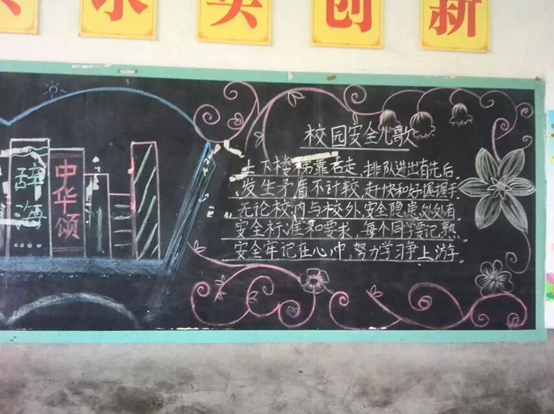 求实创新
校园安全儿歌
上下楼梯靠右走,排队进出有先后,
发生矛盾不计较,赶快和好握握手,
无论校内与校外,安全隐患处处有
安全标准和要求,每个同学要记熟
安全牢记在心中,努力学习争上游
辞海
中华颂